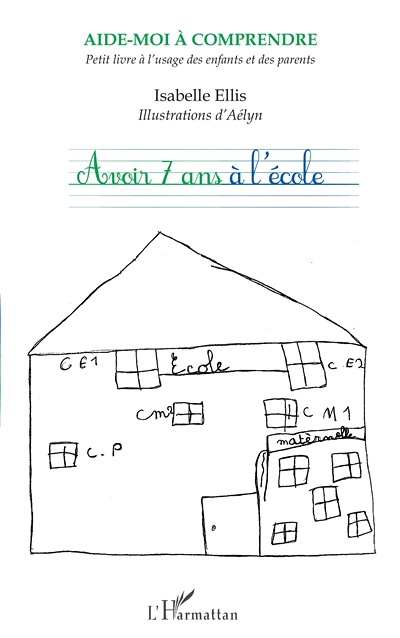 AIDE-MOI À COMPRENDRE
Petit livre à l'usage des enfants et des parents
Isabelle Ellis
Illustrations d'Aélyn
Avoir 7 ans à l'école
CE1
École
C E2
Cm2
C M1
maternelle
C.P
L'Harmattan